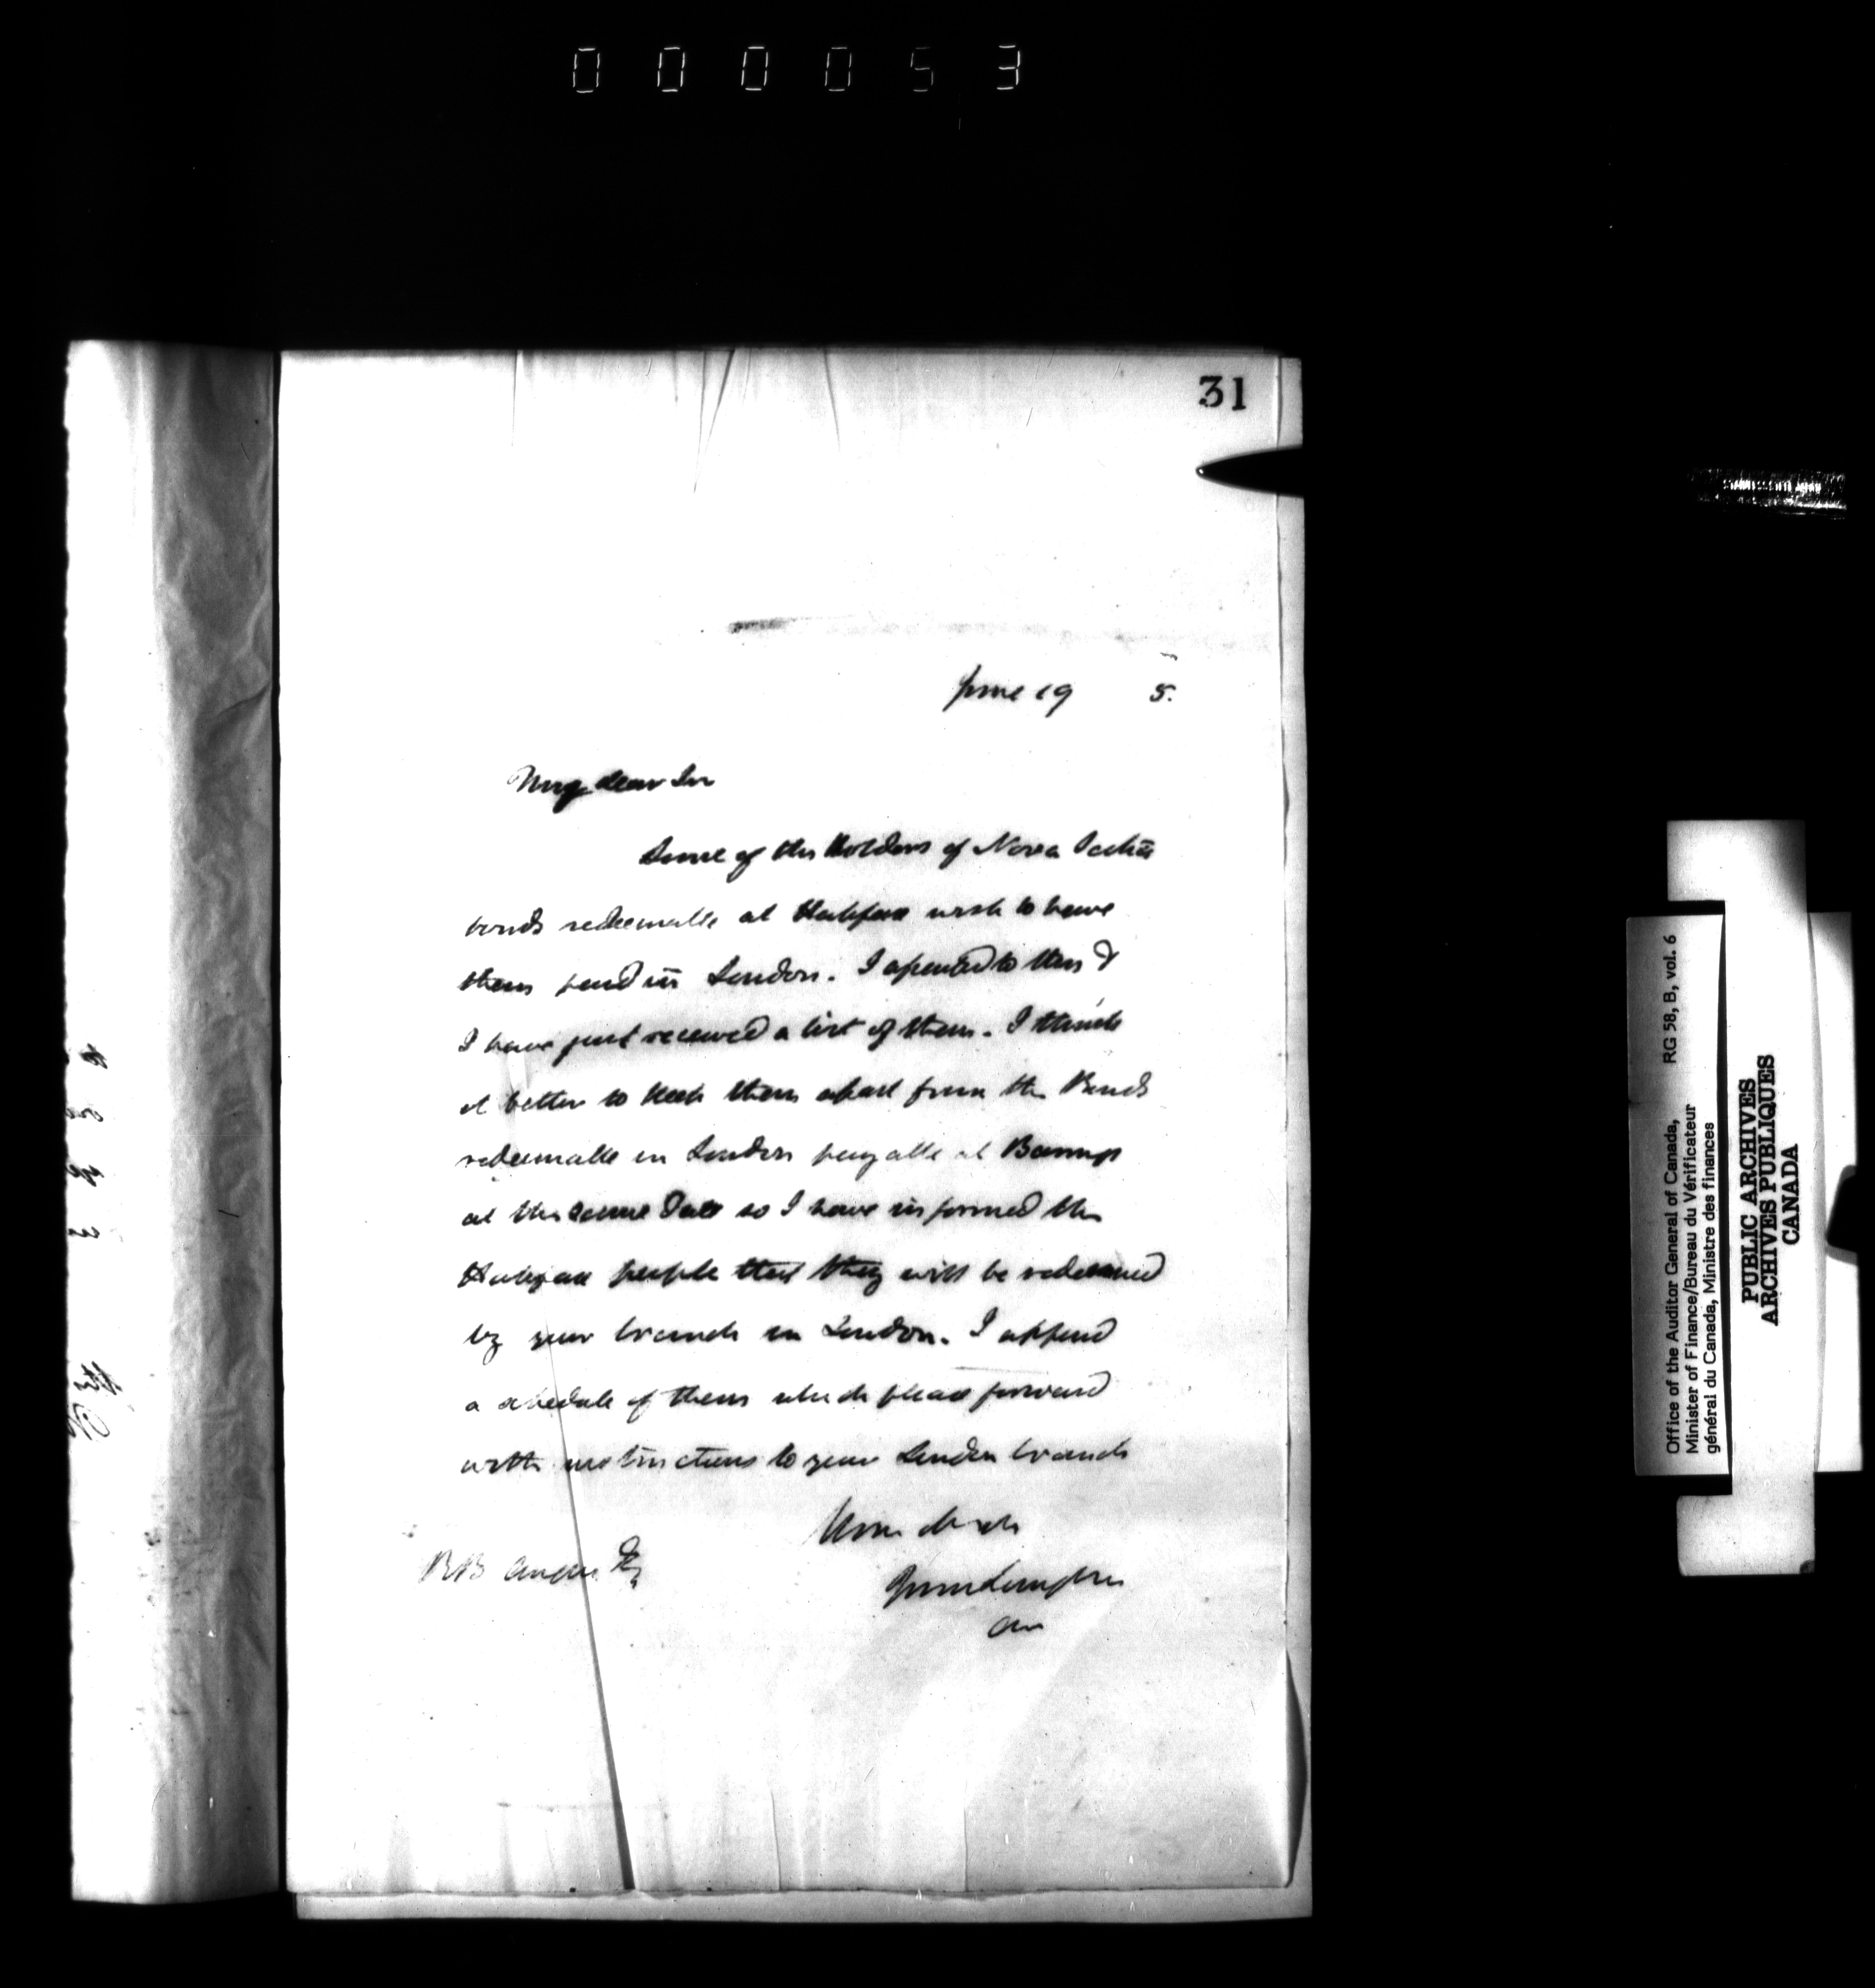 000053
31
June 19 5.
My dear Sir
Some of the Holders of Nova Scotia
bonds redeemable at Halifax wish to have
them paid in London. I assented to this &
I have just received a list of them. I think
it better to keep them apart from the Bonds
redeemable in London payable at Barings
at the same date so I have informed the
Halifax people that they will be redeemed
by your branch in London. I append
a schedule of them which please forward
with instructions to your London branch
Yours
R B Angus Esq
RG 58, B, vol. 6
Office of the Auditor General of Canada,
Minister of Finance/Bureau du Vérificateur
général du Canada, Ministre des finances
PUBLIC ARCHIVES
ARCHIVES PUBLIQUES
CANADA